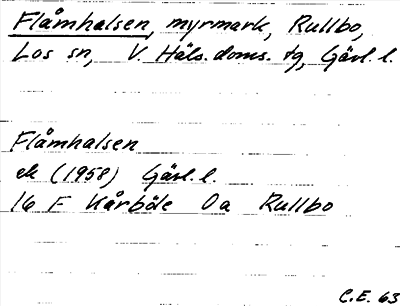 Flåmhalsen, myrmark, Rullbo,
Los sn, V. Häls. doms. tg, Gävl. l.
Flåmhalsen
ek (1958) Gävl. l.
16 F Kårböle 0a Rullbo
C.E. 63